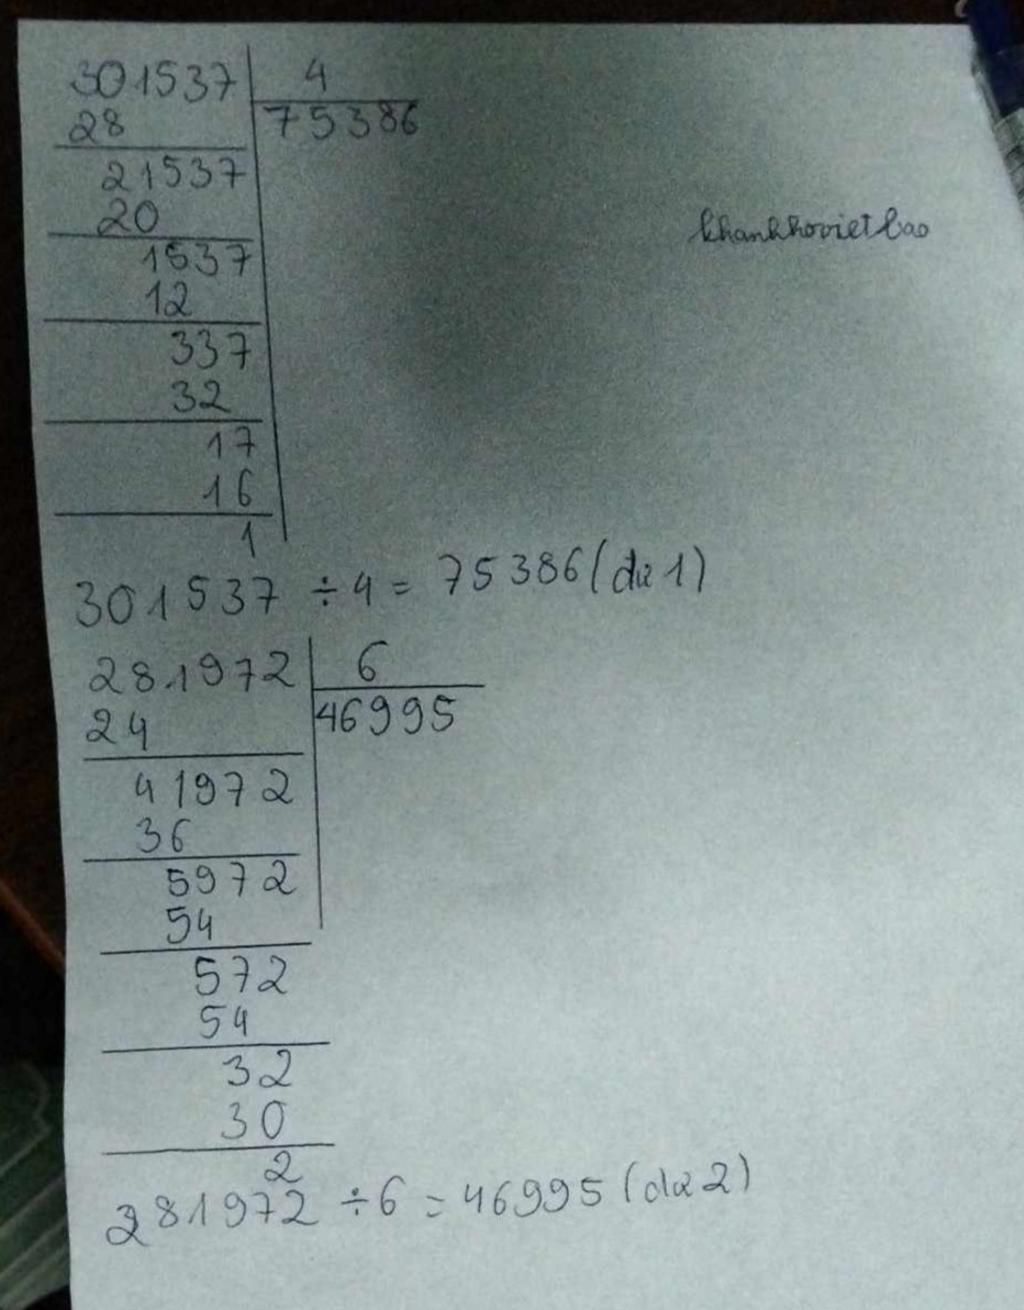 301537 4
28 75386
21537
20
khankhovietbao
1537
12
337
32
17
16
1
301537 ÷ 4 = 75386 (dư 1)
281972 6
24 46995
41972
36
5972
54
572
54
32
30
2
281972 ÷ 6 = 46995 (dư 2)